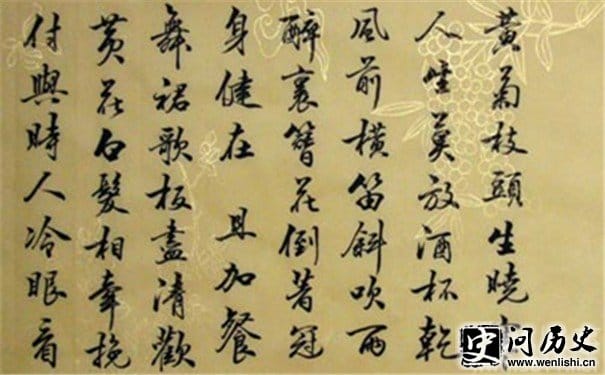 黃菊枝頭生曉
人生莫放酒杯乾
風前橫笛斜吹雨
醉裏簪花倒著冠
身健在 且加餐
舞裙歌板盡清歡
黃花白髮相牽挽
付與時人冷眼看
问历史
www.wenlishi.cn